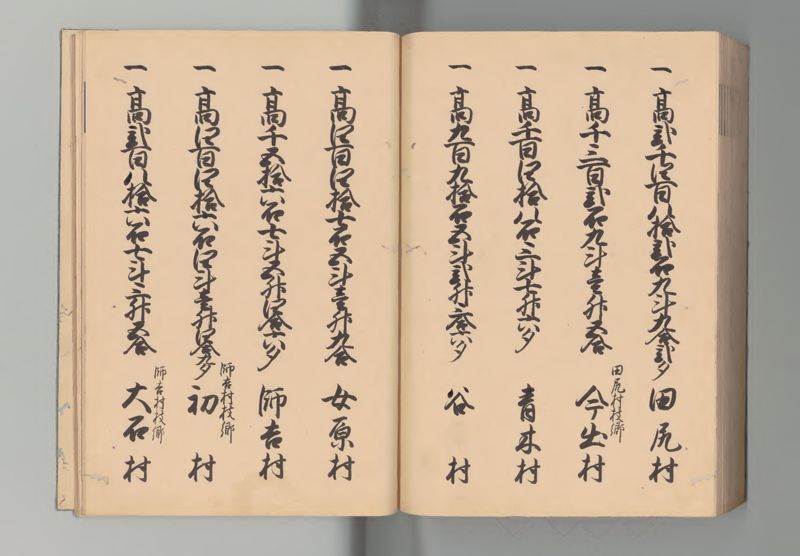 一 高弐千四百八拾弐石九斗九合弐夕 田尻村
田尻村枝郷
一 高千三百弐石九斗壱升五合 今出村
一 高千百四拾八石三斗七升六夕 青木村
一 高九百九拾石五斗弐升三合六夕 谷村
一 高四百四拾七石五斗壱升九合 女原村
一 高千五拾六石七斗五升四合六夕 師吉村
師吉村枝郷
一 高四百四拾六石四斗壱升四合九夕 初村
師吉村枝郷
一 高弐百八拾六石七斗三升五合 大石村